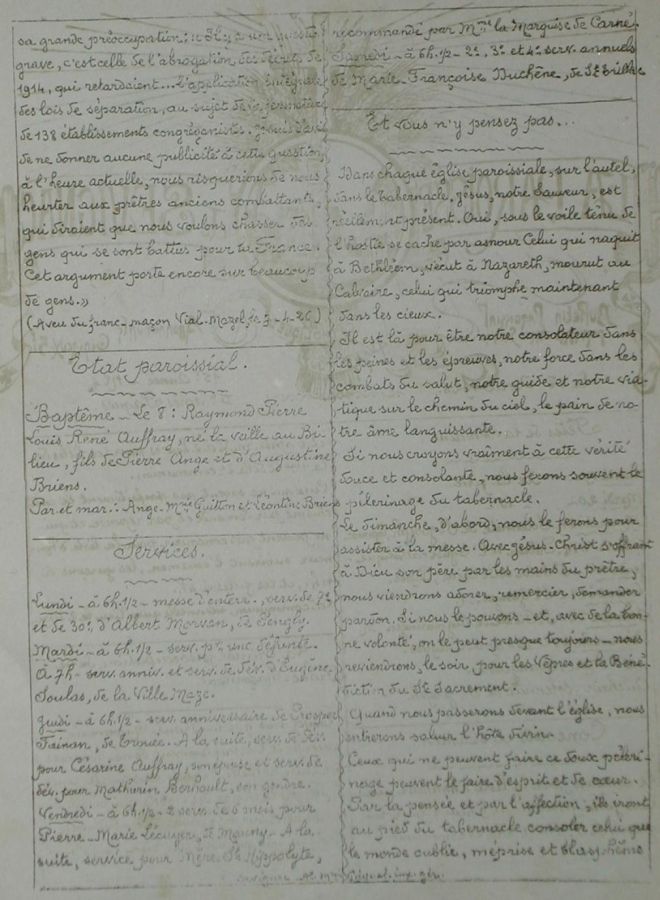 sa grande préoccupation: « Il y a une question
grave, c'est celle de l'abrogation des décrets de
1914, qui retardaient... l'application intégrale
des lois de séparation, au sujet de la fermeture
de 138 établissements congréganistes.
de ne donner aucune publicité à cette question,
à l'heure actuelle, nous risquerions de nous
heurter aux prêtres anciens combattants,
qui diraient que nous voulons chasser des
gens qui se sont battus pour la France.
Cet argument porte encore sur beaucoup
de gens.»
(Aveu du franc-maçon Vial-Mazel, 4-26)
Etat paroissial.
Baptême - Le 8: Raymond Pierre
Louis René Auffray, né la veille au Bi-
lieu, fils de Pierre Ange et d'Augustine
Briens.
Par. et mar.: Ange Mie Guitton et Léontine Briens
Services.
Lundi - à 6h.1/2 - messe d'enterr., serv. de 7e
et de 30e, d'Albert Morvan, de
Mardi - à 6h.1/2 - serv. pr une défunte.
A 7h - serv. anniv. et serv. de dév. d'Eugène
Soulas, de la Ville Maze.
Jeudi - à 6h.1/2 - serv. anniversaire de Prosper
de A la suite, serv. de dév.
pour Césarine Auffray, son épouse et serv. de
dév. pour Mathurin Bernault, son gendre.
Vendredi - à 6h.1/2 - 2 serv. de 6 mois pour
Pierre-Marie Lécuyer, de Mauny - A la
suite, service pour Mère St Hippolyte,
recommandé par Mme la Marquise de Carné.
Samedi - à 6h.1/2 - 2e, 3e et 4e serv. annuels
de Marie-Françoise Duchêne, de
Et vous n'y pensez pas...
Dans chaque église paroissiale, sur l'autel,
dans le tabernacle, Jésus, notre Sauveur, est
réellement présent. Oui, sous le voile ténu de
l'hostie se cache par amour Celui qui naquit
à Bethléem, vécut à Nazareth, mourut au
Calvaire, celui qui triomphe maintenant
dans les cieux.
Il est là pour être notre consolateur dans
les peines et les épreuves, notre force dans les
combats du salut, notre guide et notre via-
tique sur le chemin du ciel, le pain de no-
tre âme languissante.
Si nous croyons vraiment à cette vérité
douce et consolante, nous ferons souvent le
pèlerinage du tabernacle.
Le dimanche, d'abord, nous le ferons pour
assister à la messe. Avec Jésus-Christ s'offrant
à Dieu son père par les mains du prêtre,
nous viendrons adorer, remercier, demander
pardon. Si nous le pouvons - et, avec de la bon-
ne volonté, on le peut presque toujours - nous
reviendrons, le soir, pour les Vêpres et la Béné-
diction du St Sacrement.
Quand nous passerons devant l'église, nous
entrerons saluer l'hôte divin.
Ceux qui ne peuvent faire ce doux pèleri-
nage peuvent le faire d'esprit et de cœur.
Par la pensée et par l'affection, ils iront
au pied du tabernacle consoler celui que
le monde oublie, méprise et blasphème